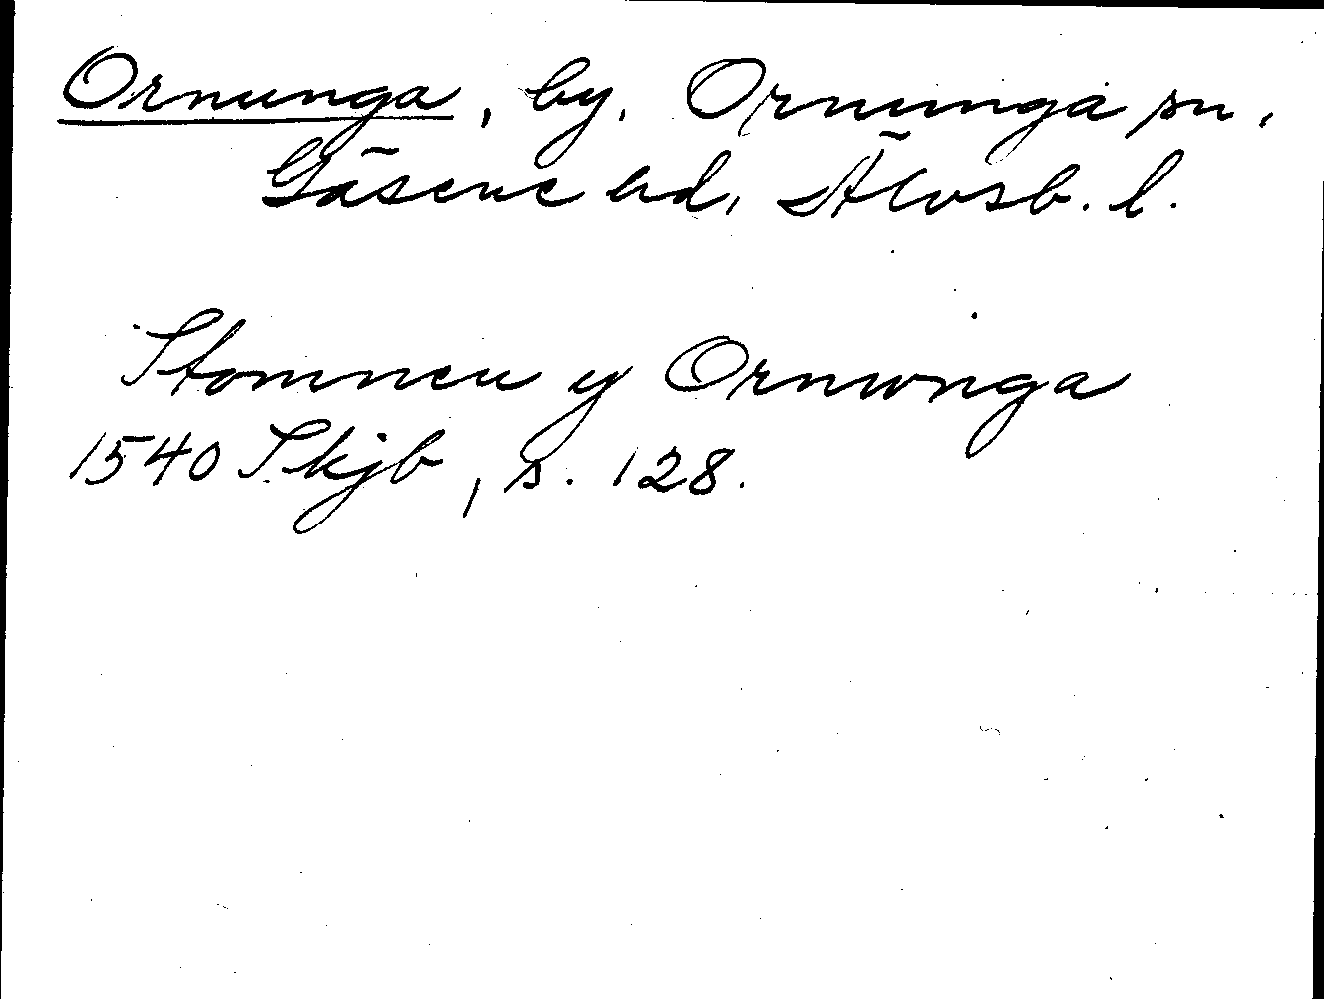 Ornunga, by, Ornunga sn,
Gäsene hd, Älvsb. l.
Stomnen y Ornwnga
1540 Skjb, s. 128.